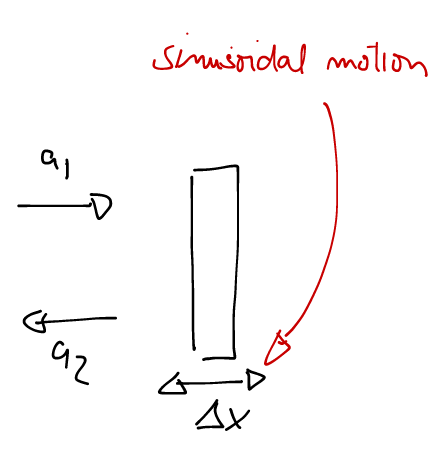 sinusoidal motion
a1
a2
Δx